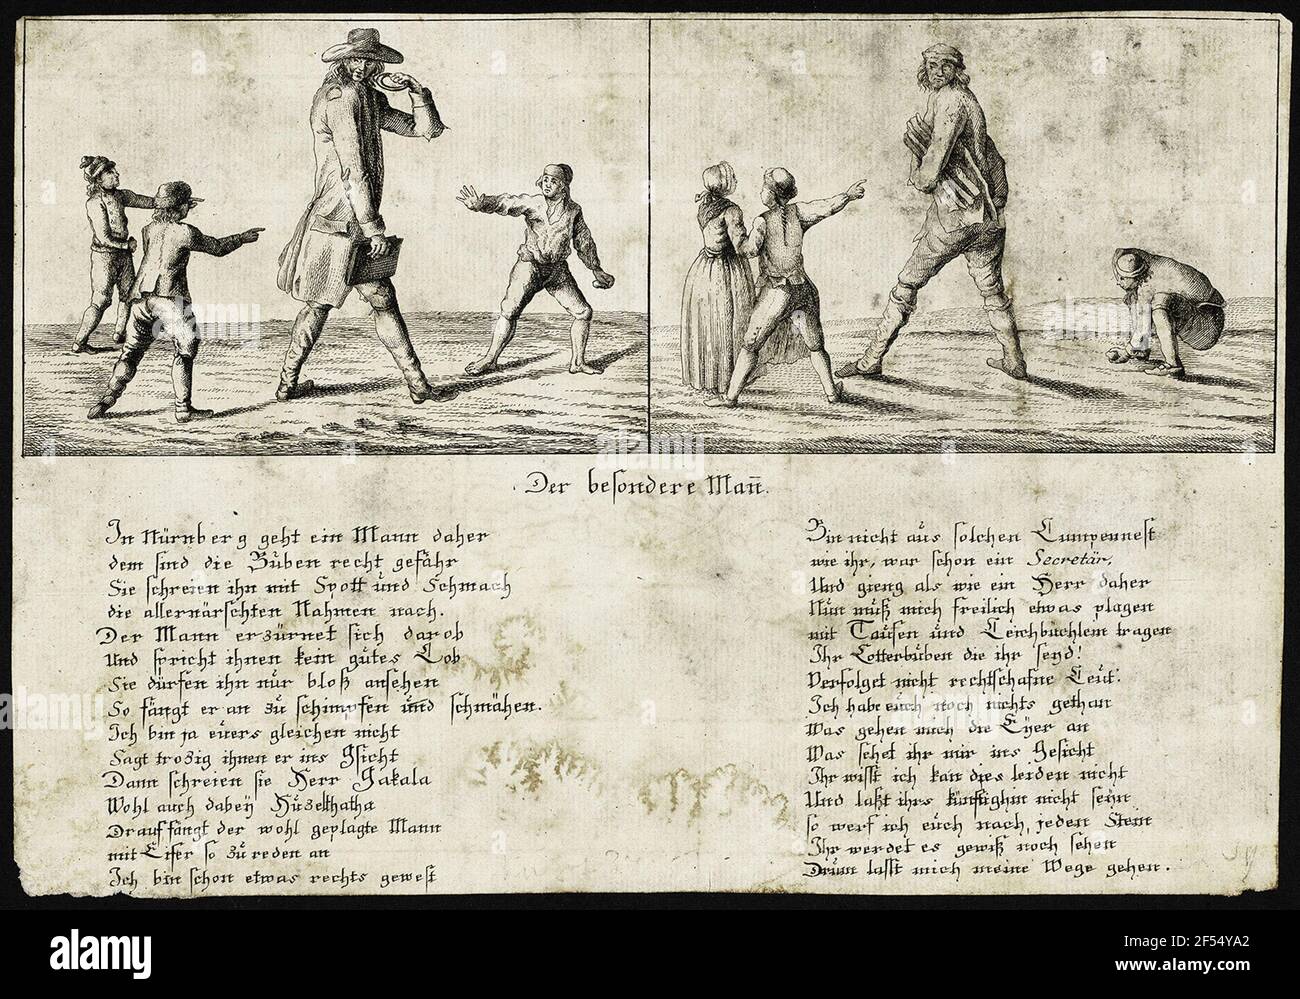 Der besondere Mañ.
In Nürnberg geht ein Mann daher
dem sind die Buben recht gefähr
Sie schreien ihn mit Spott und Schmach
die allernärschten Nahmen nach.
Der Mann erzürnet sich darob
Und spricht ihnen kein gutes Lob
Sie dürfen ihn nur bloß ansehen
So fängt er an zu schimpfen und schmähen.
Ich bin ja euers gleichen nicht
Sagt trozig ihnen er ins Gsicht
Dann schreien sie Herr Gakala
Wohl auch dabeÿ
Drauf fängt der wohl geplagte Mann
mit Eifer so zu reden an
Ich bin schon etwas rechts gewest
Bin nicht aus solchen Lumpennest
wie ihr, war schon ein Secretär,
Und gieng als wie ein Herr daher
Nun muß mich freilich etwas plagen
mit Taufen und Leichbuchlein tragen
Ihr Lotterbuben die ihr seyd!
Verfolget nicht rechtschafne Leut.
Ich habe euch noch nichts gethan
Was gehen mich die Eÿer an
Was sehet ihr mir ins Gesicht
Ihr wisst ich kan dies leiden nicht
Und laßt ihrs künftighin nicht seyn
so werf ich euch nach, jeden Stein
Ihr werdet es gewiß noch sehen
Drum lasst mich meine Wege gehen.
alamy
Image ID: 2F54YA2
www.alamy.com